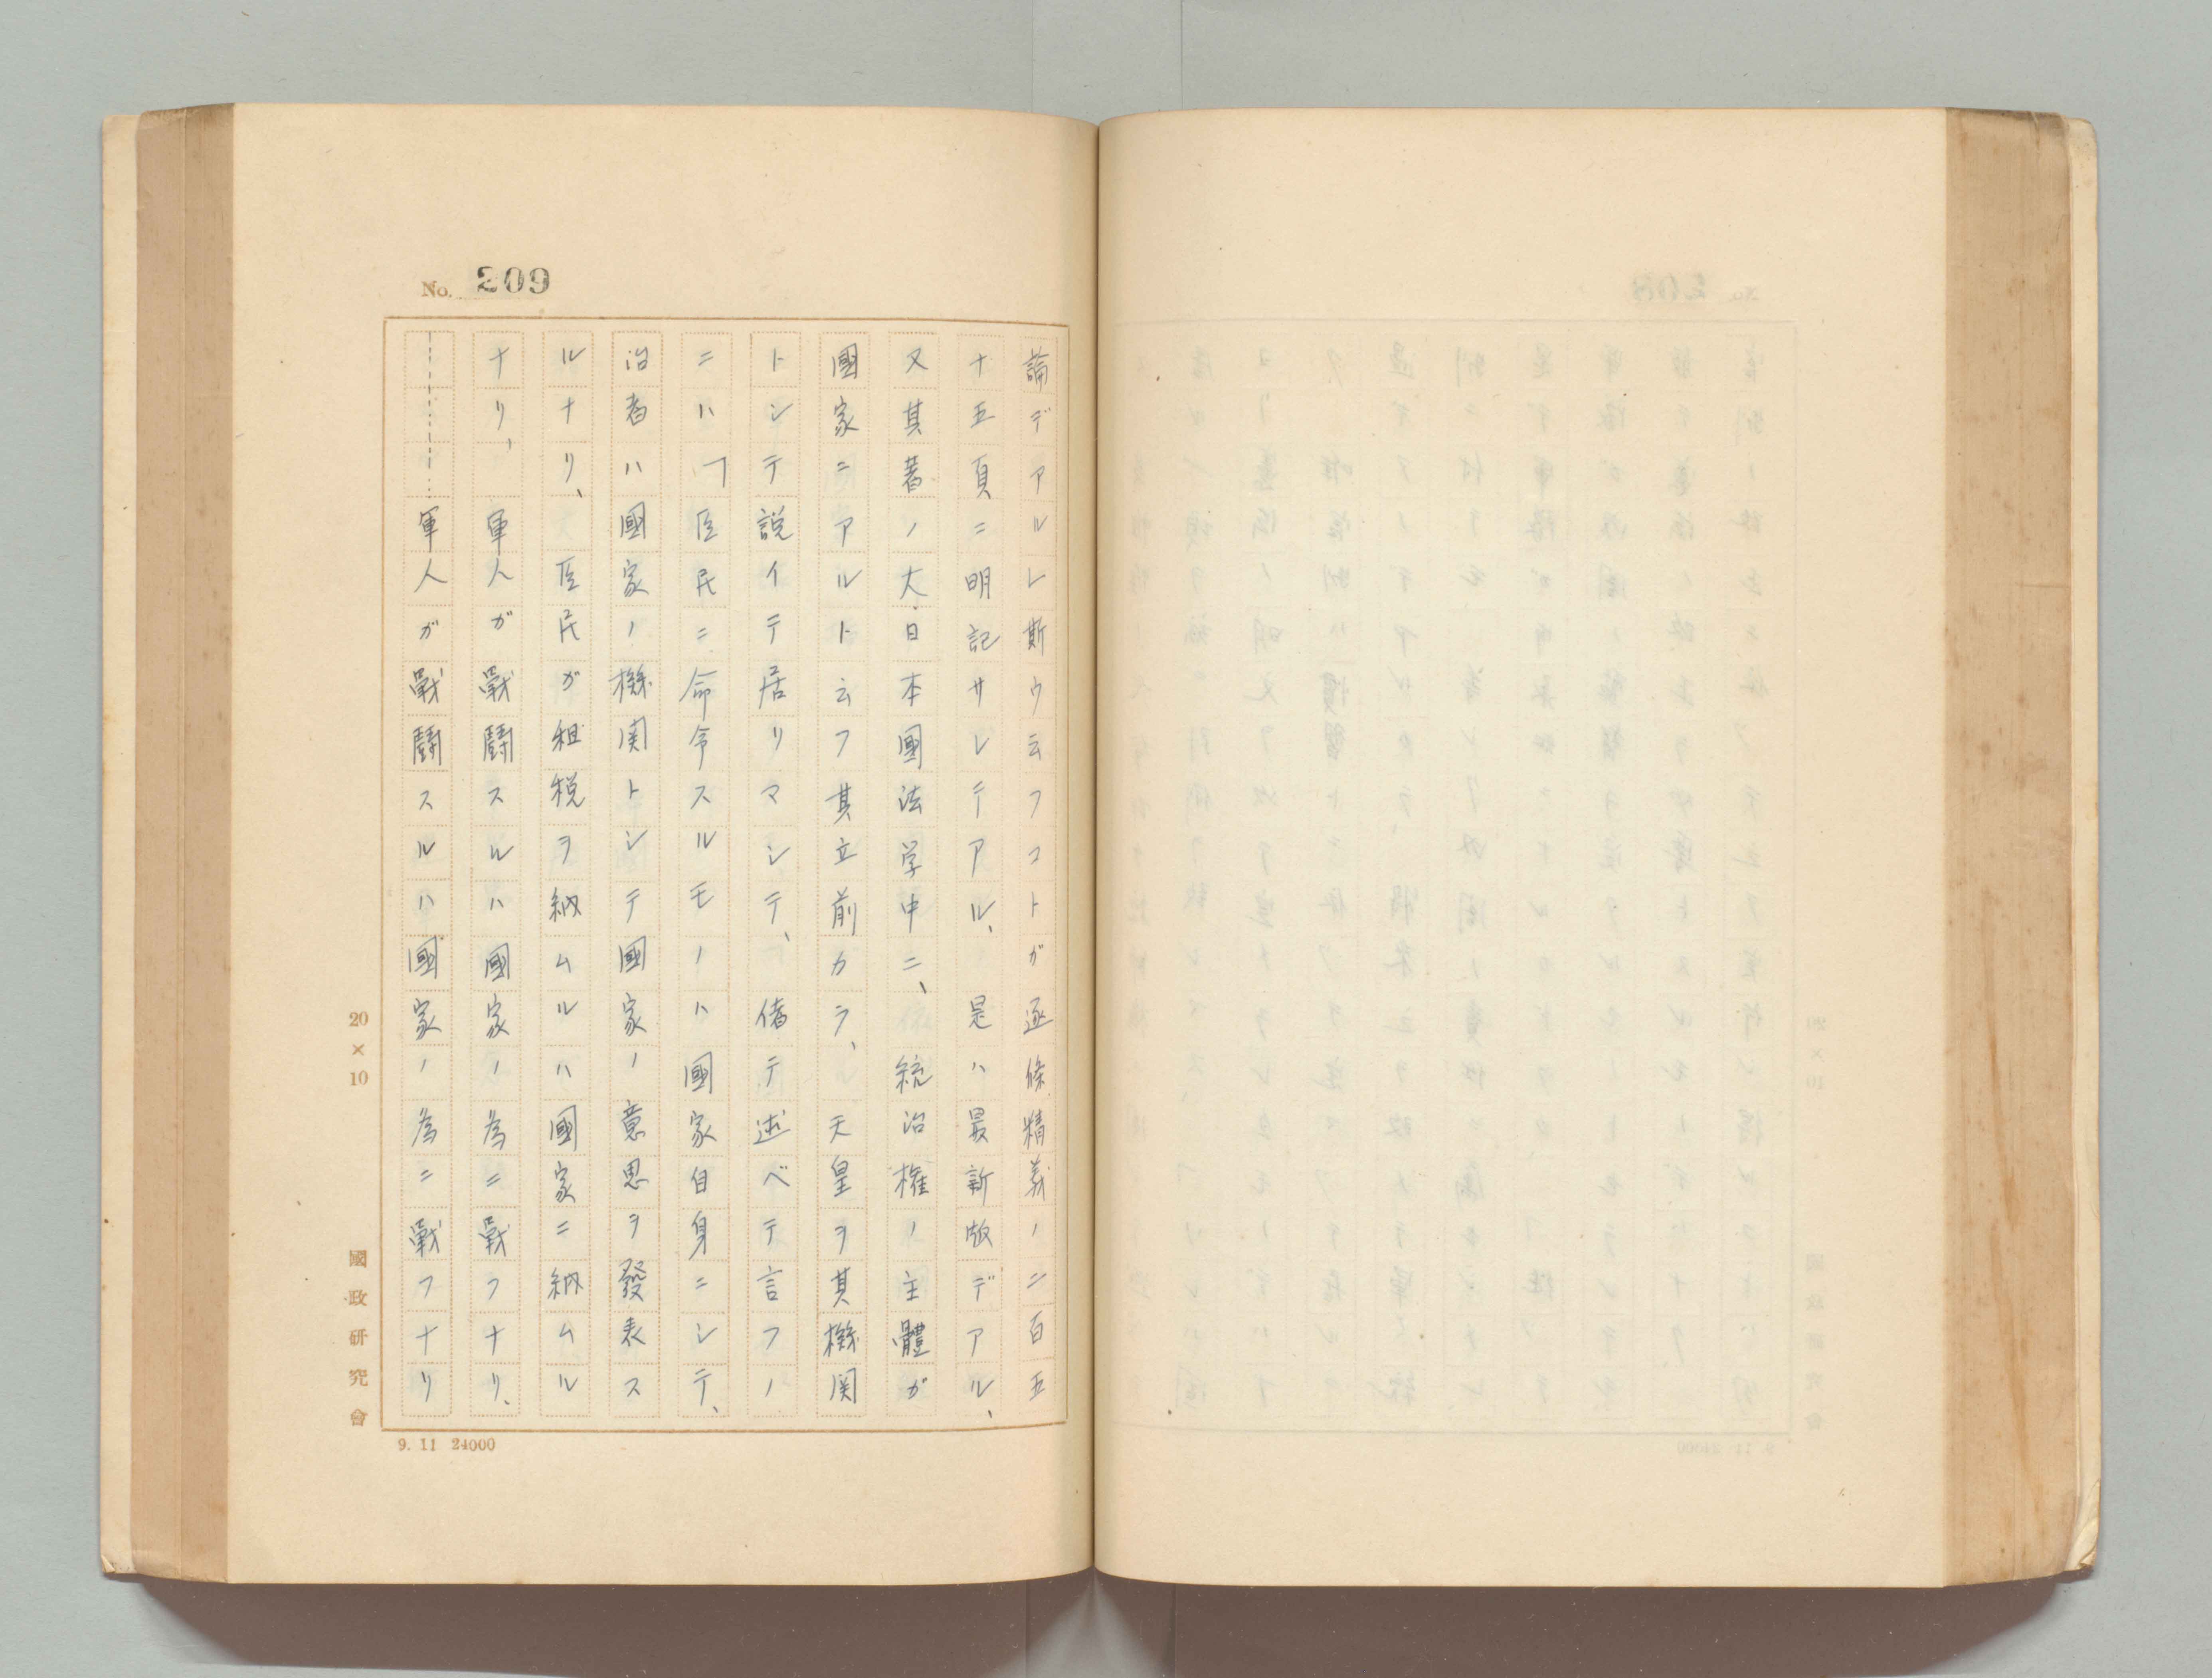 No. 209
論デアルレ斯ウ云フコトガ逐條精義ノ二百五
十五頁ニ明記サレテアル、是ハ最新版デアル、
又其著ノ大日本國法学中ニ、統治権ノ主體ガ
國家ニアルト云フ其立前カラ、天皇ヲ其機関
トシテ説イテ居リマシテ、偖テ述ベテ言フノ
ニハ「臣民ニ命令スルモノハ國家自身ニシテ、
治者ハ國家ノ機関トシテ國家ノ意思ヲ發表ス
ルナリ、臣民ガ租税ヲ納ムルハ國家ニ納ムル
ナリ、軍人ガ戰鬪スルハ國家ノ為ニ戰フナリ、
………軍人ガ戰鬪スルハ國家ノ為ニ戰フナリ
20×10
國政研究會
9. 11 24000